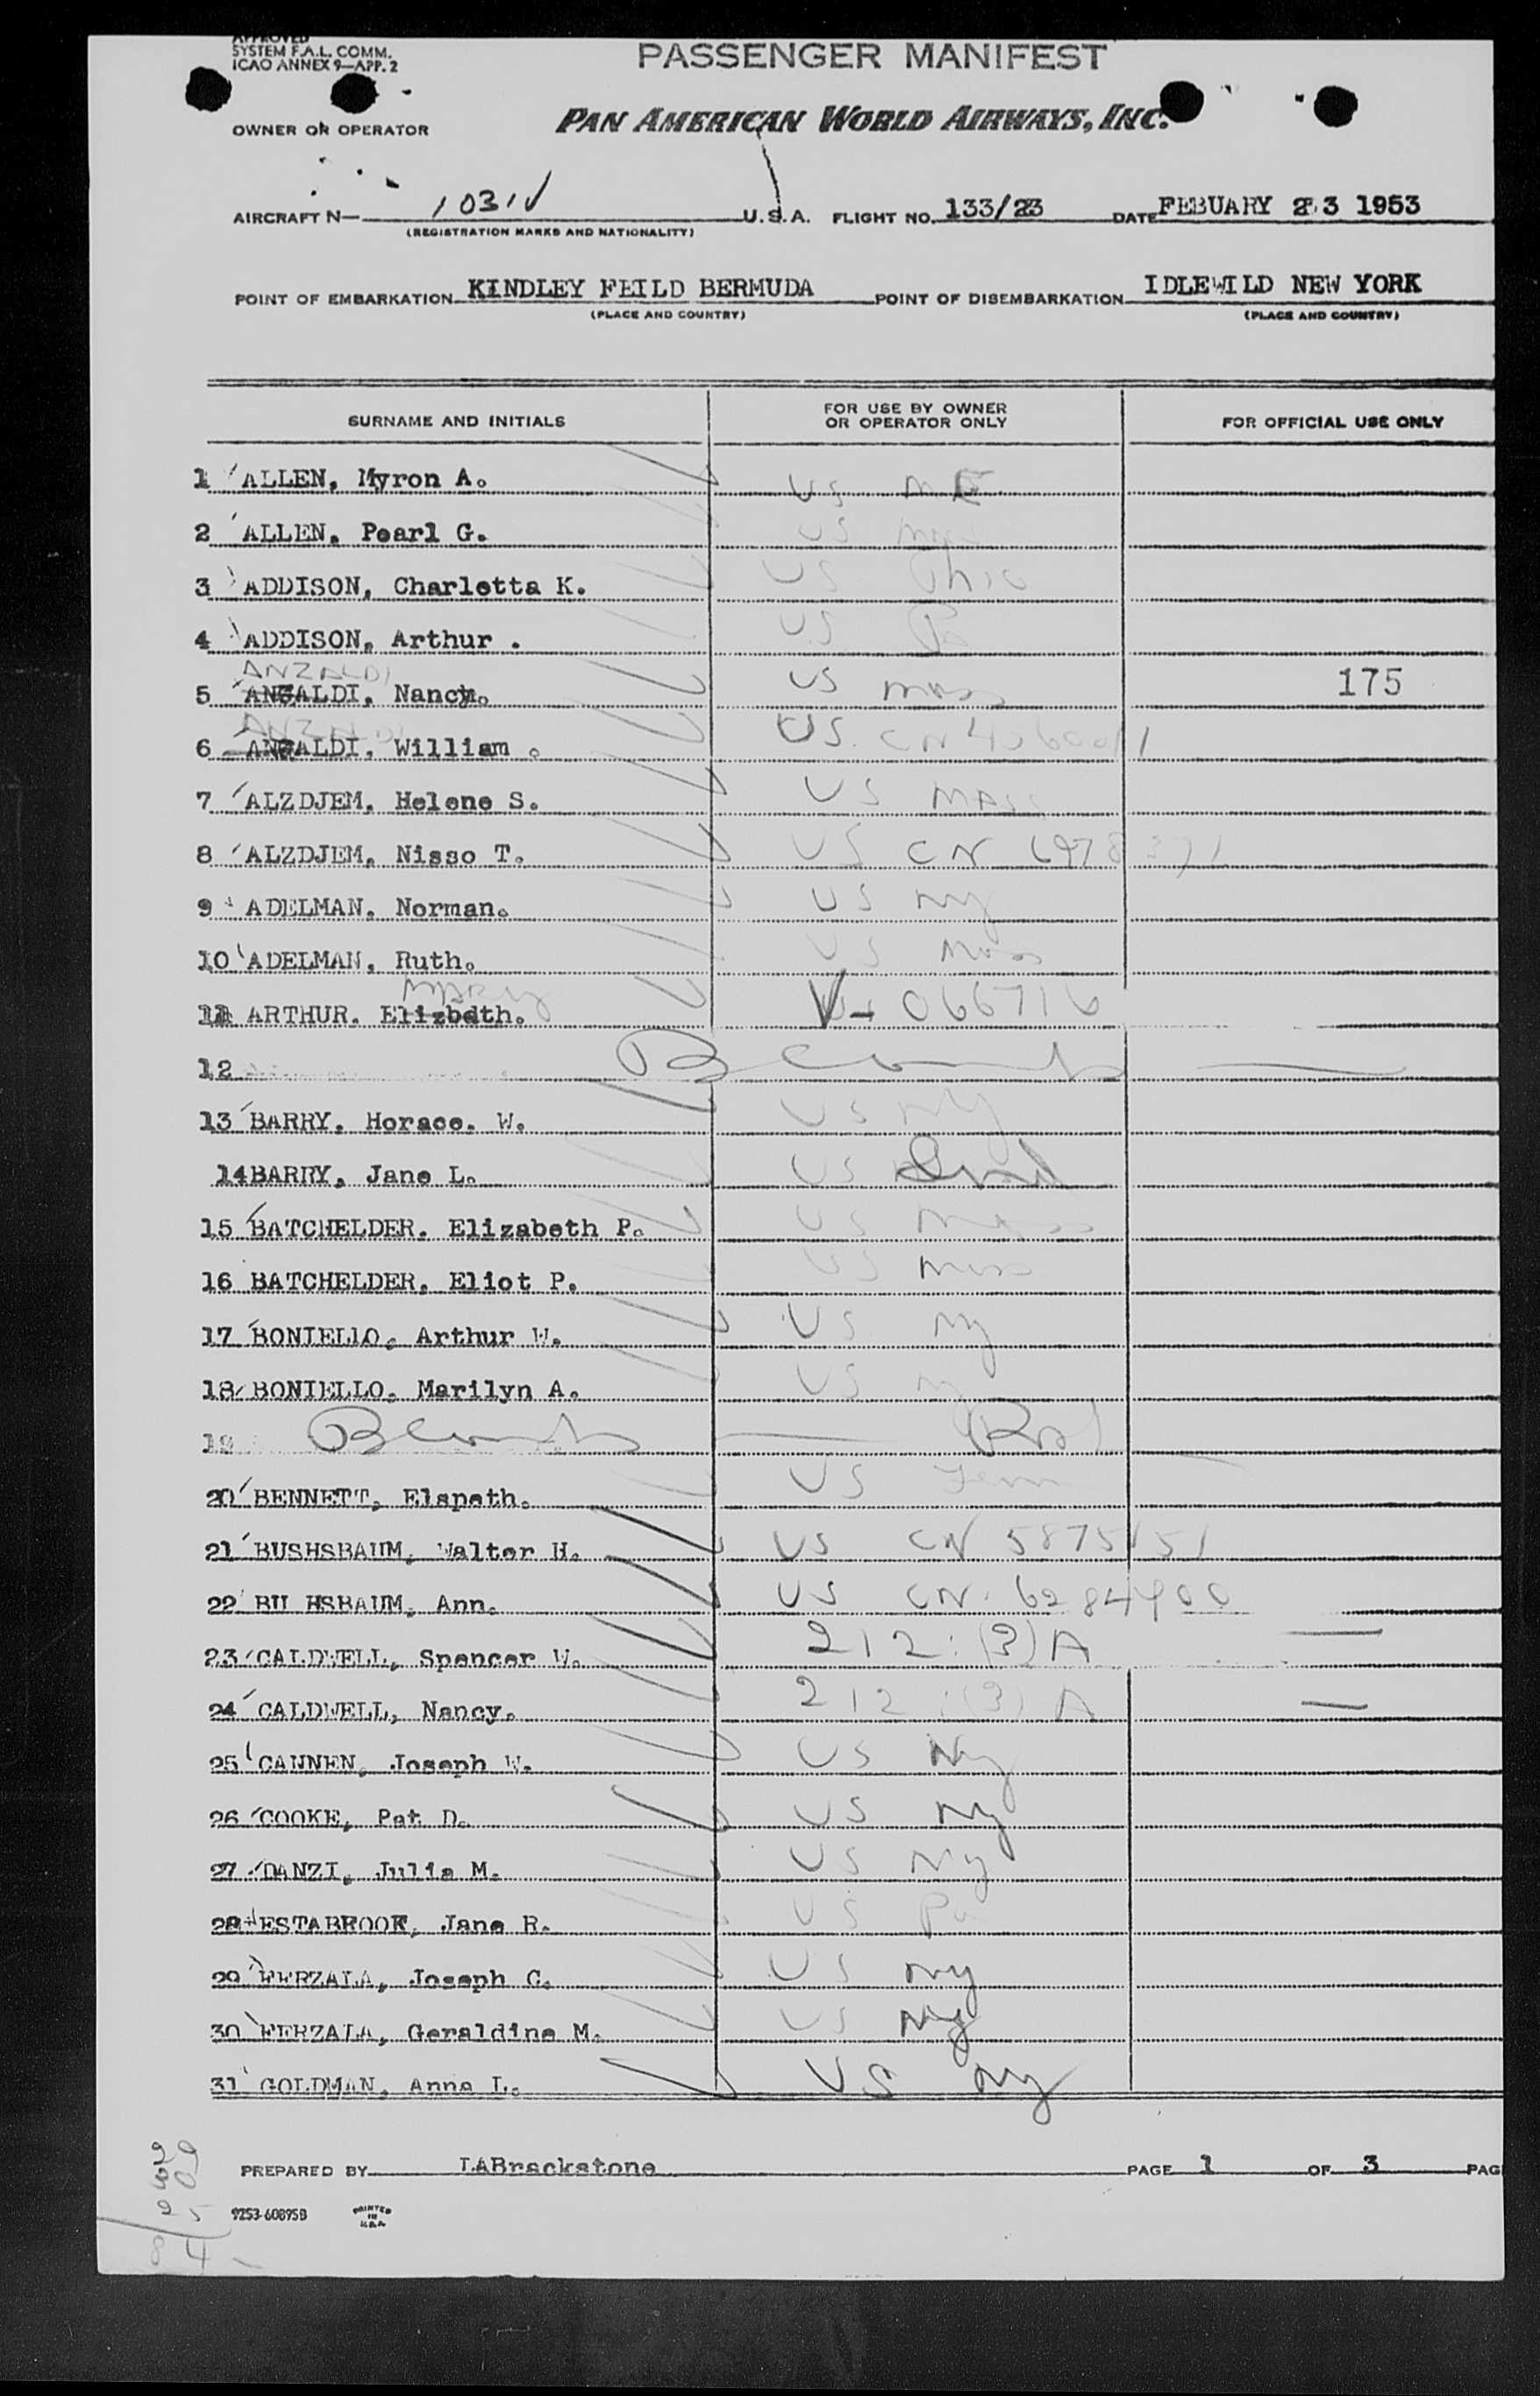 APPROVED
SYSTEM F.A.L. COMM.
ICAO ANNEX 9—APP. 2
PASSENGER MANIFEST
OWNER OR OPERATOR PAN AMERICAN WORLD AIRWAYS, INC.
AIRCRAFT N— 1031V U.S.A. FLIGHT NO. 133/23 DATE FEBUARY 23 1953
(REGISTRATION MARKS AND NATIONALITY)
POINT OF EMBARKATION KINDLEY FEILD BERMUDA POINT OF DISEMBARKATION IDLEWILD NEW YORK
(PLACE AND COUNTRY) (PLACE AND COUNTRY)
SURNAME AND INITIALS FOR USE BY OWNER OR OPERATOR ONLY FOR OFFICIAL USE ONLY
1 ALLEN, Myron A. US ME
2 ALLEN, Pearl G. US
3 ADDISON, Charletta K. US Ohio
4 ADDISON, Arthur . US Pa
ANZALDI
5 ANZALDI, Nancy. US Mass 175
ANZALDI
6 ANZALDI, William . US CN
7 ALZDJEM, Helene S. US MASS
8 ALZDJEM, Nisso T. US CN 6978371
9 ADELMAN, Norman. US NY
10 ADELMAN, Ruth. US Mass
MARY
11 ARTHUR. Elizbeth. 066716
12
13 BARRY. Horace. W. US NY
14 BARRY, Jane L. US
15 BATCHELDER. Elizabeth P. US Mass
16 BATCHELDER, Eliot P. US Mass
17 BONIELLO, Arthur W. US NY
18 BONIELLO, Marilyn A. US
19
20 BENNETT, Elspeth. US
21 BUSHSBAUM, Walter H. US CN 5875151
22 BU HSBAUM, Ann. US CN. 6284900
23 CALDWELL, Spencer W. 212:(3)A —
24 CALDWELL, Nancy. 212:(3)A —
25 CANNEN, Joseph W. US NY
26 COOKE, Pat D. US NY
27 DANZI, Julia M. US NY
28 ESTABROOK, Jane R. US Pa
29 FERZALA, Joseph C. US NY
30 FERZALA, Geraldine M. US NY
31 GOLDMAN, Anna L. US NY
PREPARED BY LABrackstone PAGE 1 OF 3 PAG
9253-60895B PRINTED IN U.S.A.
84